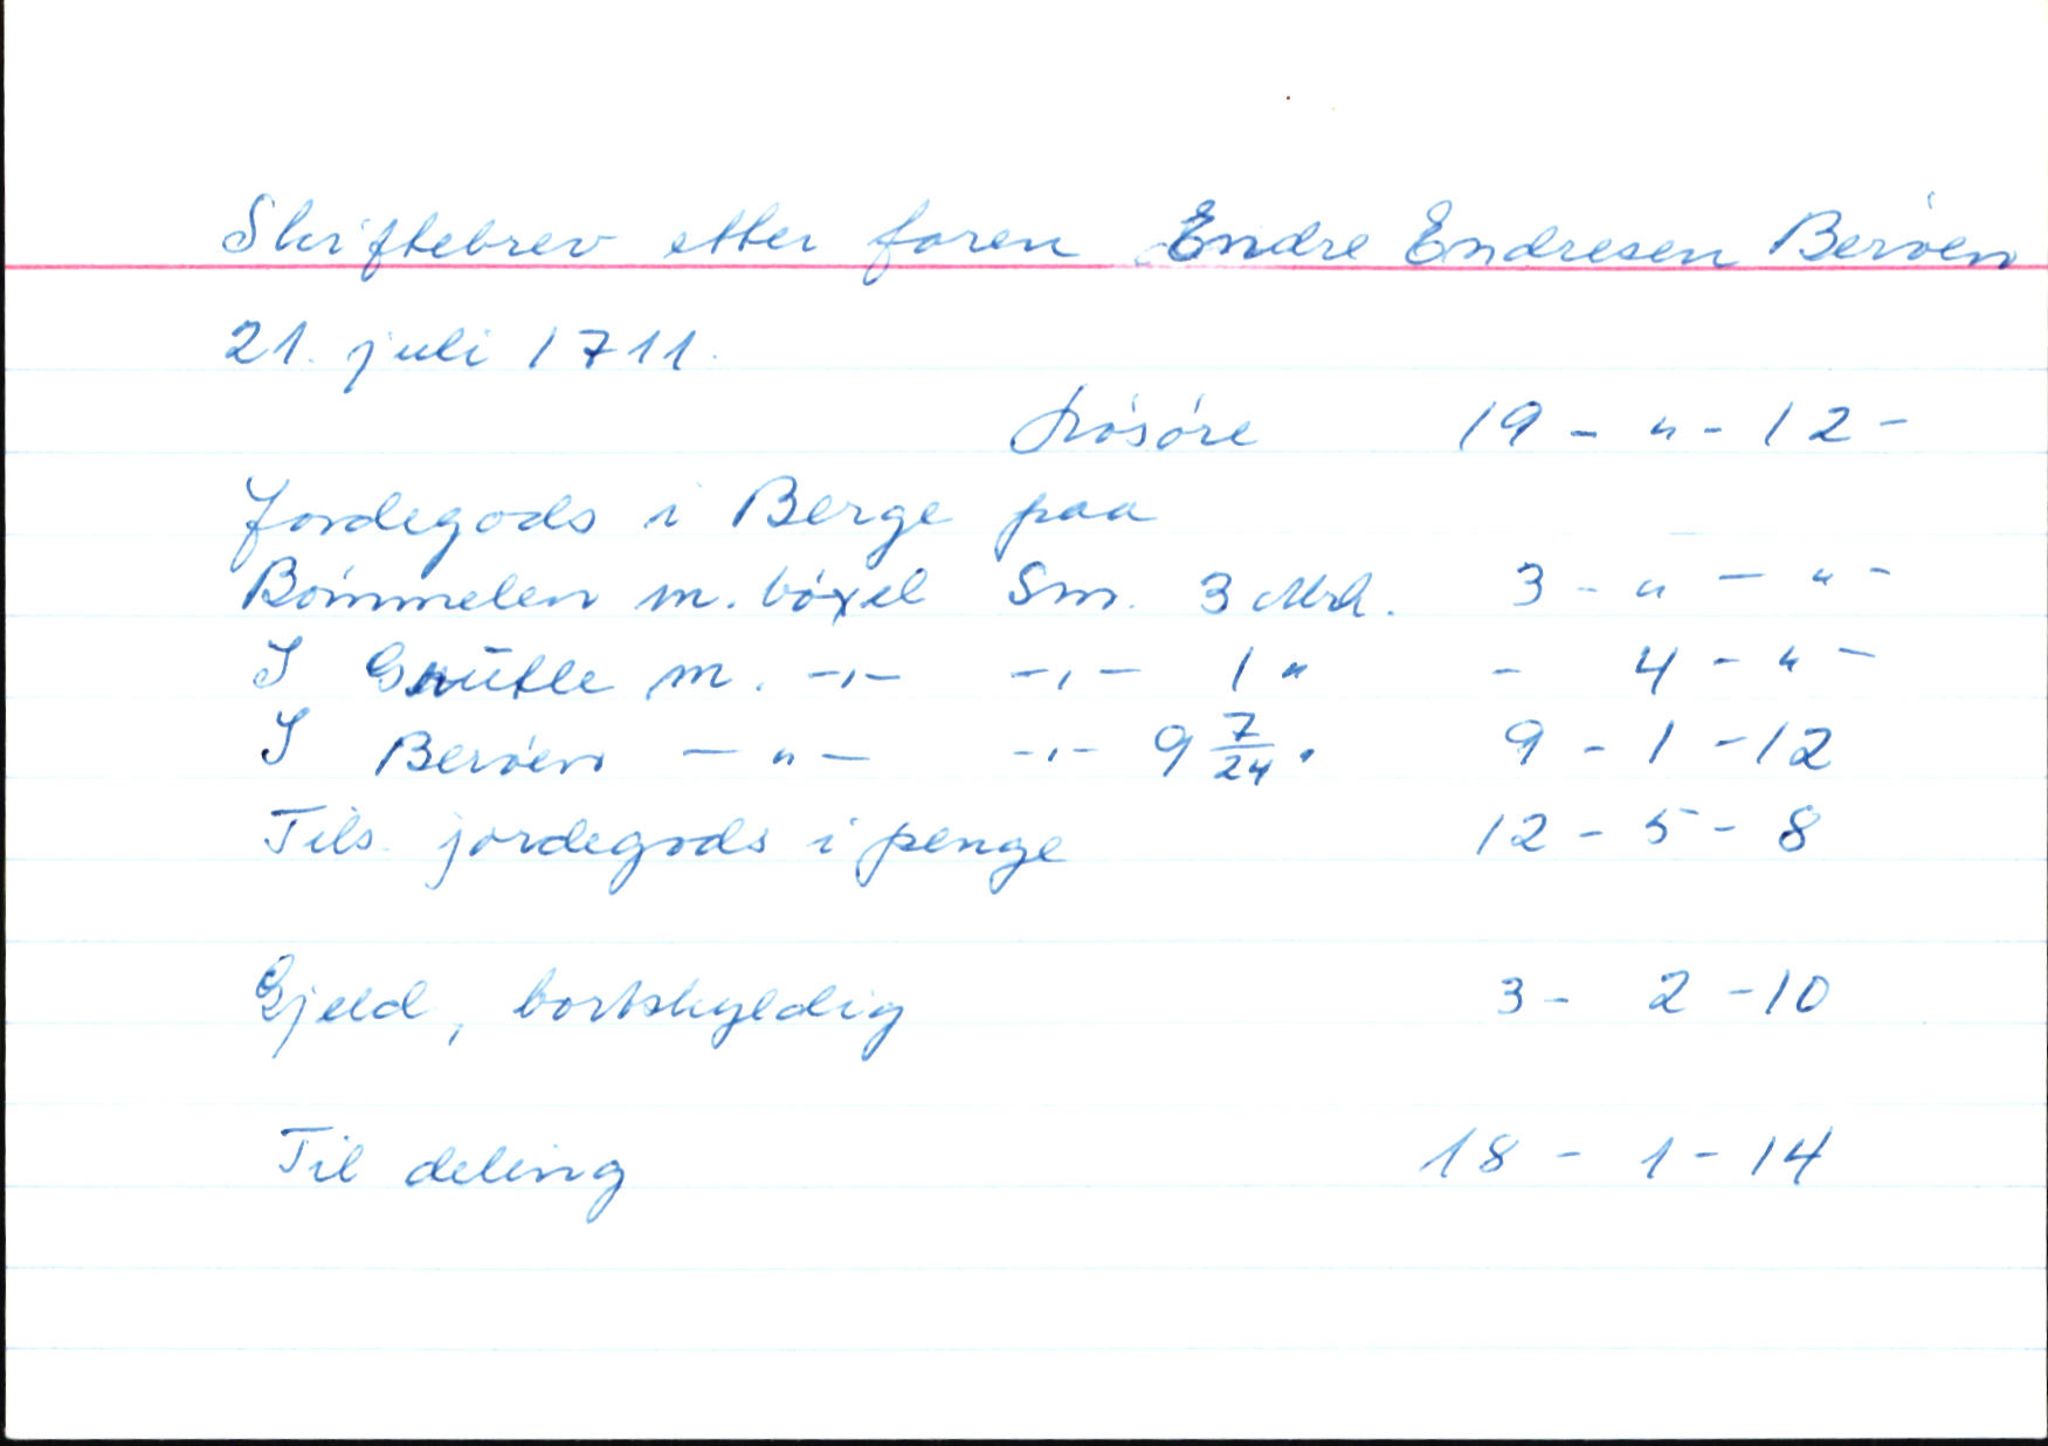 Skiftebrev etter faren Endre Endresen Berven
21. juli 1711.
Lösöre 19 - " - 12 -
Jordegods i Berge paa
Bömmelen m. böxel Sm. 3 Mrk. 3 - " - " -
I Gnutle m. -,- -,- 1 " - 4 - " -
I Berven - " - -,- 9 7/24 " 9 - 1 - 12
Tils. jordegods i penge 12 - 5 - 8
Gjeld, bortskyldig 3 - 2 - 10
Til deling 18 - 1 - 14